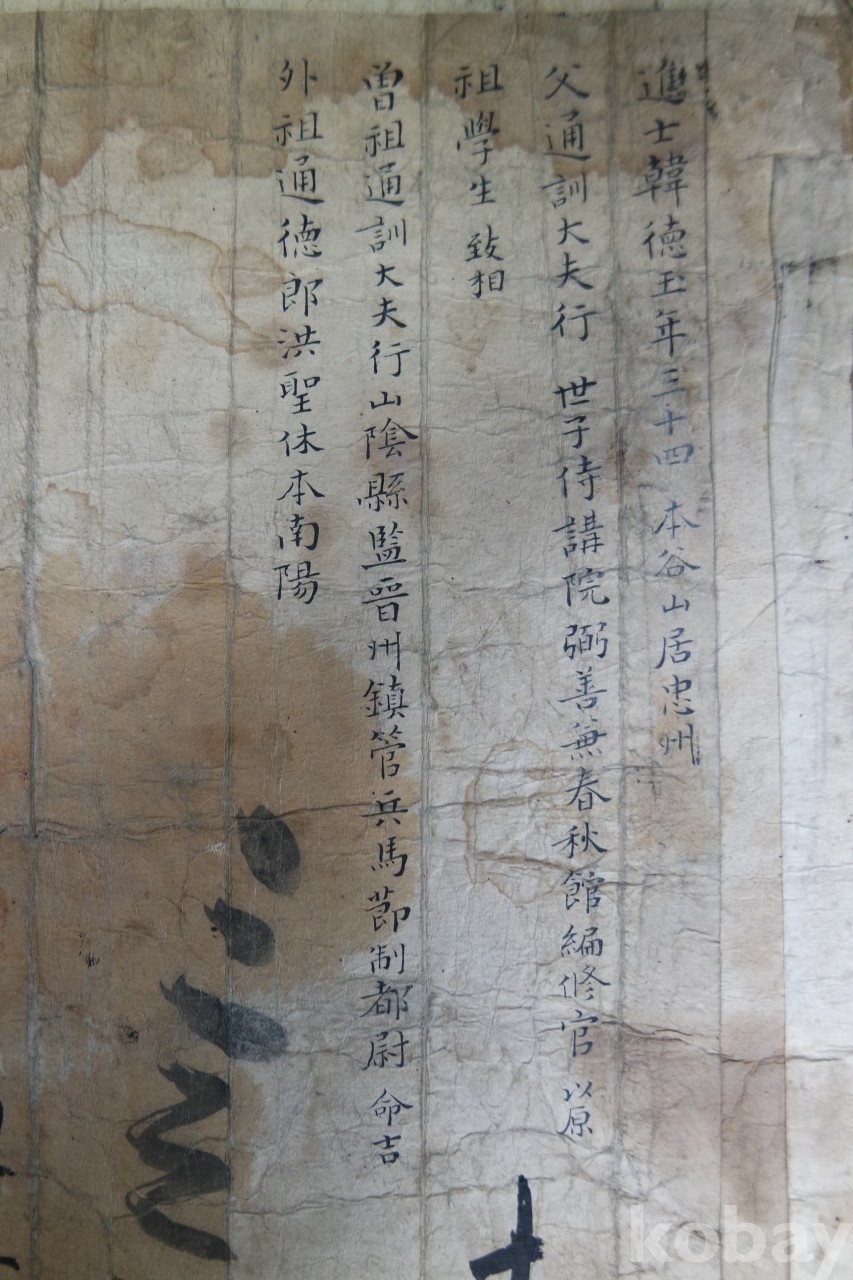 進士韓德玉年三十四 本谷山居忠州
父通訓大夫行 世子侍講院弼善兼春秋館編修官 以原
祖學生 致相
曾祖通訓大夫行山陰縣監晉州鎮管兵馬節制都尉 命吉
外祖通德郎洪聖休本南陽
kobay